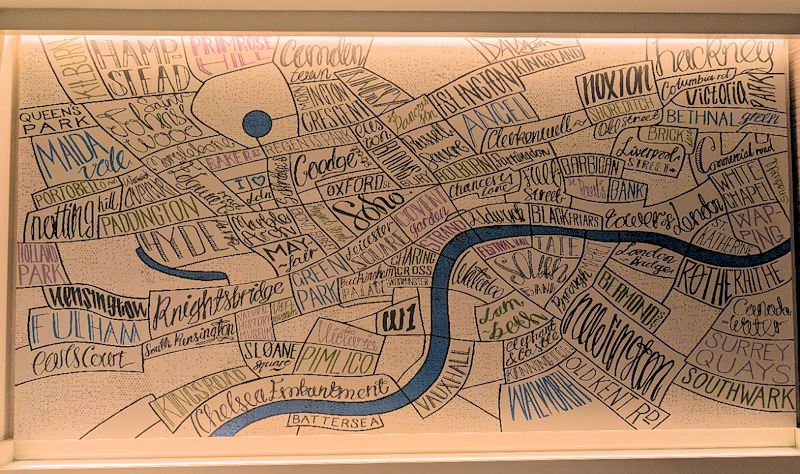 KILBURN
HAMP-
STEAD
PRIMROSE
HILL
Camden
town
KINGSLAND
hackney
QUEEN'S
PARK
Saint
John's
wood
CRESCENT
ISLINGTON
ANGEL
hoxton
SHOREDITCH
Columbia rd
Victoria
PARK
Old street
BETHNAL green
MAIDA
vale
REGENTS
Russell
Square
Clerkenwell
BRICK
Liverpool
STREET
Commercial road
PORTOBELLO
BAKER
Goodge
HOLBORN
Farringdon
BARBICAN
WHITE
CHAPEL
notting hill
PADDINGTON
I ♥ Ldn
OXFORD
Chancery
Lane
Fleet
Street
St Paul's
BANK
HYDE
MAY-
fair
Soho
COVENT
Garden
STRAND
Aldwich
BLACKFRIARS
Tower's
London
St
KATHERINE
WAP-
PING
HOLLAND
PARK
Leicester
SQUARE
CHARING
CROSS
FESTIVAL HALL
TATE
South
BANK
London
Bridge
ROTHERHITHE
Kensington
Knightsbridge
GREEN
PARK
Buckingham
PALACE
WESTMINSTER
Waterloo
Borough
BERMONDSEY
FULHAM
South Kensington
NATURAL
HISTORY
W1
Lam
beth
newington
Canada
water
earls Court
SLOANE
Square
Victoria
PIMLICO
elephant
& Castle
KENNINGTON
SURREY
QUAYS
KINGSROAD
Chelsea Embankment
VAUXHALL
WALWORTH
OLD KENT RD
SOUTHWARK
BATTERSEA